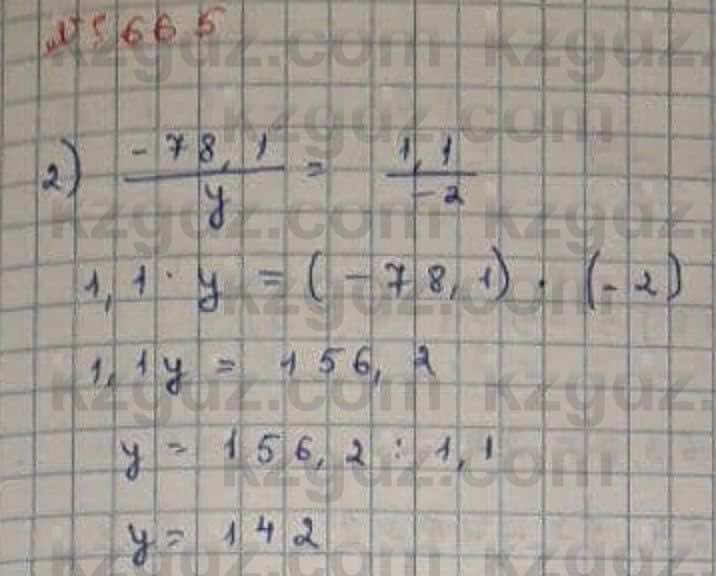 № 665
2) -78,1/y = 1,1/-2
1,1 · y = (-78,1) · (-2)
1,1y = 156,2
y = 156,2 : 1,1
y = 142
kzgdz.com